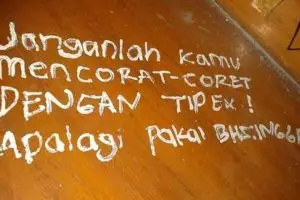 Janganlah kamu
mencorat-coret
DENGAN TIPEX!
Apalagi pakai